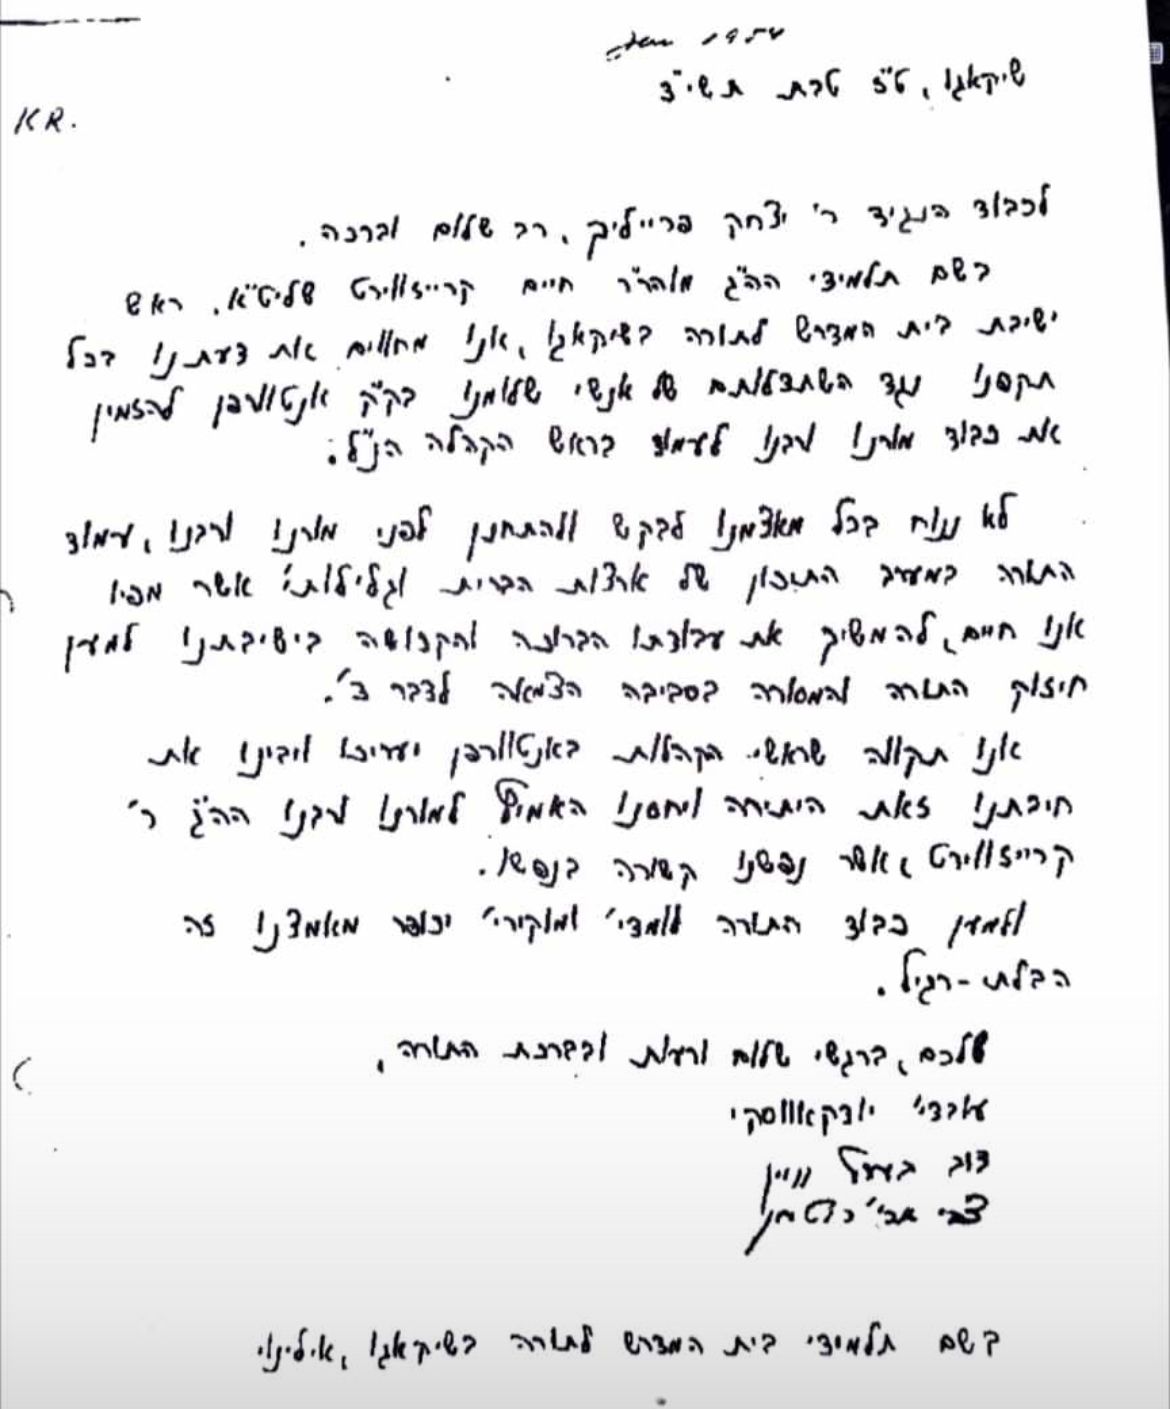 Jan 1954
שיקאגו, ט"ז טבת תשי"ד
KR.
לכבוד הנגיד ר' יצחק פרייליך, רב שלום וברכה.
בשם תלמידי הה"ג מוהר"ר חיים קרייזווירט שליט"א, ראש
ישיבת בית המדרש לתורה בשיקאגו, אנו מחווים את דעתנו בכל
תקפנו נגד השתדלותם של אנשי שלומנו בק"ק אנטווערפן להזמין
את כבוד מורנו ורבנו לעמוד בראש הקהלה הנ"ל:
לא ננוח בכל מאמצנו לבקש ולהתחנן לפני מורנו ורבנו, עמוד
התורה במערב התיכון של ארצות הברית וגלילותי' אשר מפיו
אנו חיים, להמשיך את עבודתו הברוכה והקדושה בישיבתנו למען
חיזוק התורה והמסורה בסביבה הצמאה לדבר ד'.
אנו תקוה שראשי הקהלות באנטווערפן יעריכו ויבינו את
חיבתנו זאת היתירה ויחסנו האמיץ למורנו ורבנו הה"ג ר'
קרייזווירט, אשר נפשנו קשורה בנפשו.
ולמען כבוד התורה לומדי' ומוקירי' יכופר מאמצנו זה
הבלתי-רגיל.
שלכם, ברגשי שלום ורעות ובברכת התורה,
עובדי' יודקאווסקי
דוב בערל וויין
צבי ארי'
בשם תלמידי בית המדרש לתורה בשיקאגו, אילינוי